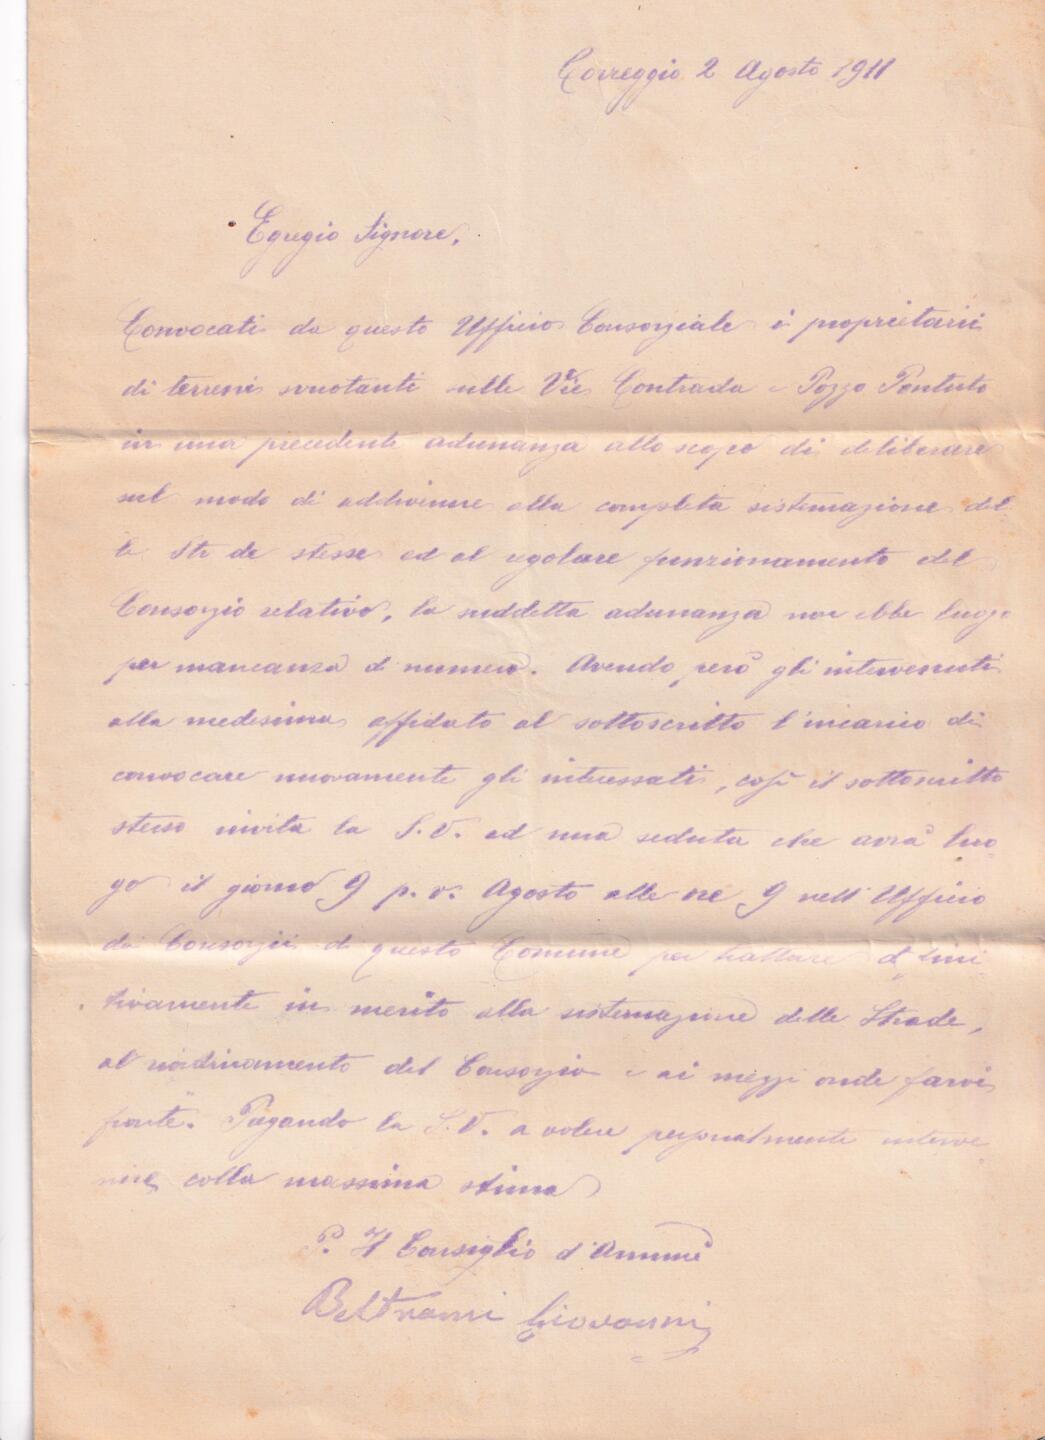 Correggio 2 Agosto 1911
Egregio Signore,
Convocati da questo Ufficio Consorziale i proprietarii
di terreni svuotanti sulle Vie Contrada e Pozzo Pontuto
in una precedente adunanza allo scopo di deliberare
sul modo di addivenire alla completa sistemazione del
le Strade stesse ed al regolare funzionamento del
Consorzio relativo, la suddetta adunanza non ebbe luogo
per mancanza di numero. Avendo però gli intervenuti
alla medesima affidato al sottoscritto l'incarico di
convocare nuovamente gli interessati, così il sottoscritto
stesso invita la S.V. ad una seduta che avrà luo-
go il giorno 9 p.v. Agosto alle ore 9 nell'Ufficio
dei Consorzii di questo Comune per trattare defini
tivamente in merito alla sistemazione delle Strade,
al riordinamento del Consorzio e ai mezzi onde farvi
fronte. Pregando la S.V. a volere personalmente interve
nire colla massima stima
P. Il Consiglio d'Amm.ne
Beltrami Giovanni